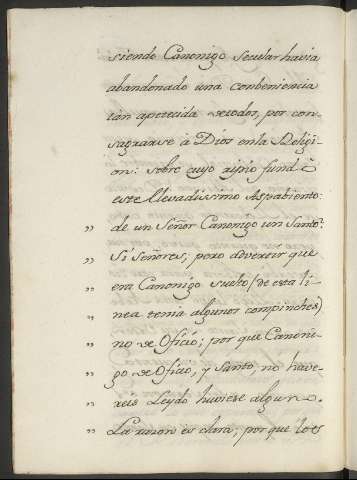 siendo Canonigo secular havia
abandonado una conbeniencia
tan apetecida de todos, por con-
sagrarse à Dios en la Religi-
on: sobre cuyo
este llevadissimo
de un Señor Canonigo un Santo?
,, Si señores, pero advertir que
,, era Canonigo suelto (de esta li-
,, nea tenia algunos compinches)
,, no de Oficio; por que Canoni-
,, go de Oficio, y Santo, no have-
,, reis leydo huviese alguno.
,, La razon es clara; por que los